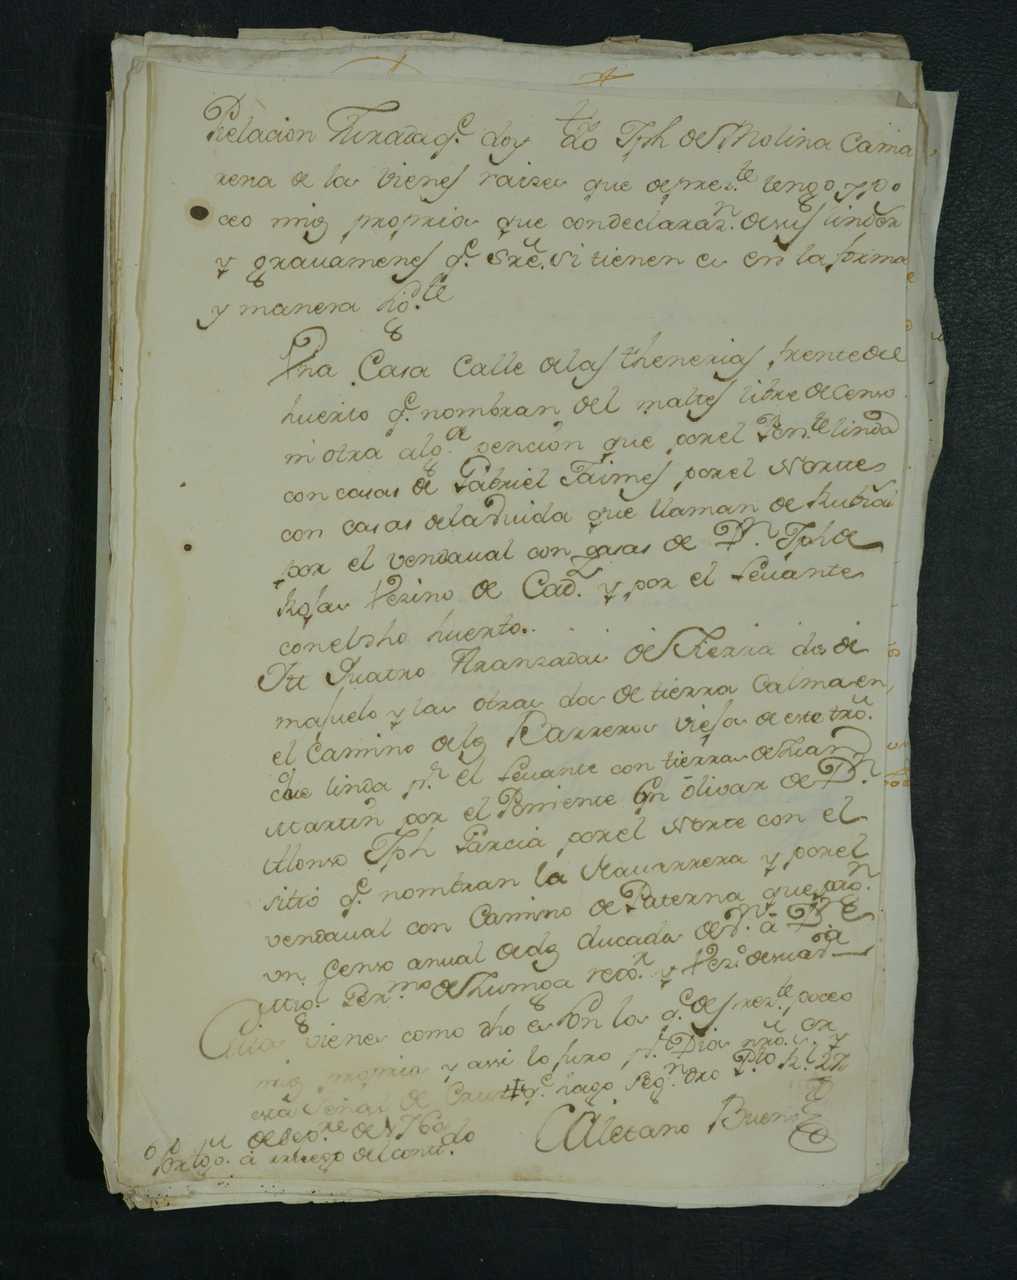 Relacion Jurada q.e doy Yo Jph de Molina Cama
rena de los vienes raizes que de prez.te tengo y po
ceo mios propria que con declaraz.n de sus linderos
y grauamenes q.e sre. si tienen es en la forma
y manera sig.te
Vna Casa Calle de las Thenerias frente de el
huerto q.e nombran del maltes libre de censo
ni otra alg.a pencion que por el Pon.te linda
con casas de Gabriel Jaimes por el Norte
con casas de la Viuda que llaman de Rubiа
por el vendaual con casas de D.n Jph de
Rojas Vezino de Cad.z y por el Leuante
con el dho huerto.
Itt Quatro Aranzadas de Tierra dos de
majuelo y las otras dos de tierra Calma en
el Camino de los Carreros viejo de este tro.
que linda p.r el Leuante con tierras de Juan
Martin por el Poniente con oliuar de D.n
Alonso Jph Garcia por el Norte con el
sitio q.e nombran la Nauarrera y por el
vendaual con Camino de Paterna
vn Censo anual de dos ducados de v.n a
de Zumoza y Vez.o de
Cuios vienes como dho es son los q.e de prez.te poceo
mios proprios y assi lo juro p.r Dios nro. s.r y
esta señal de Cruz + q.e hago Seg.n dro P.to R.l 27
de de 1760
por tgo. a ruego del conti.do
Caietano Bueno